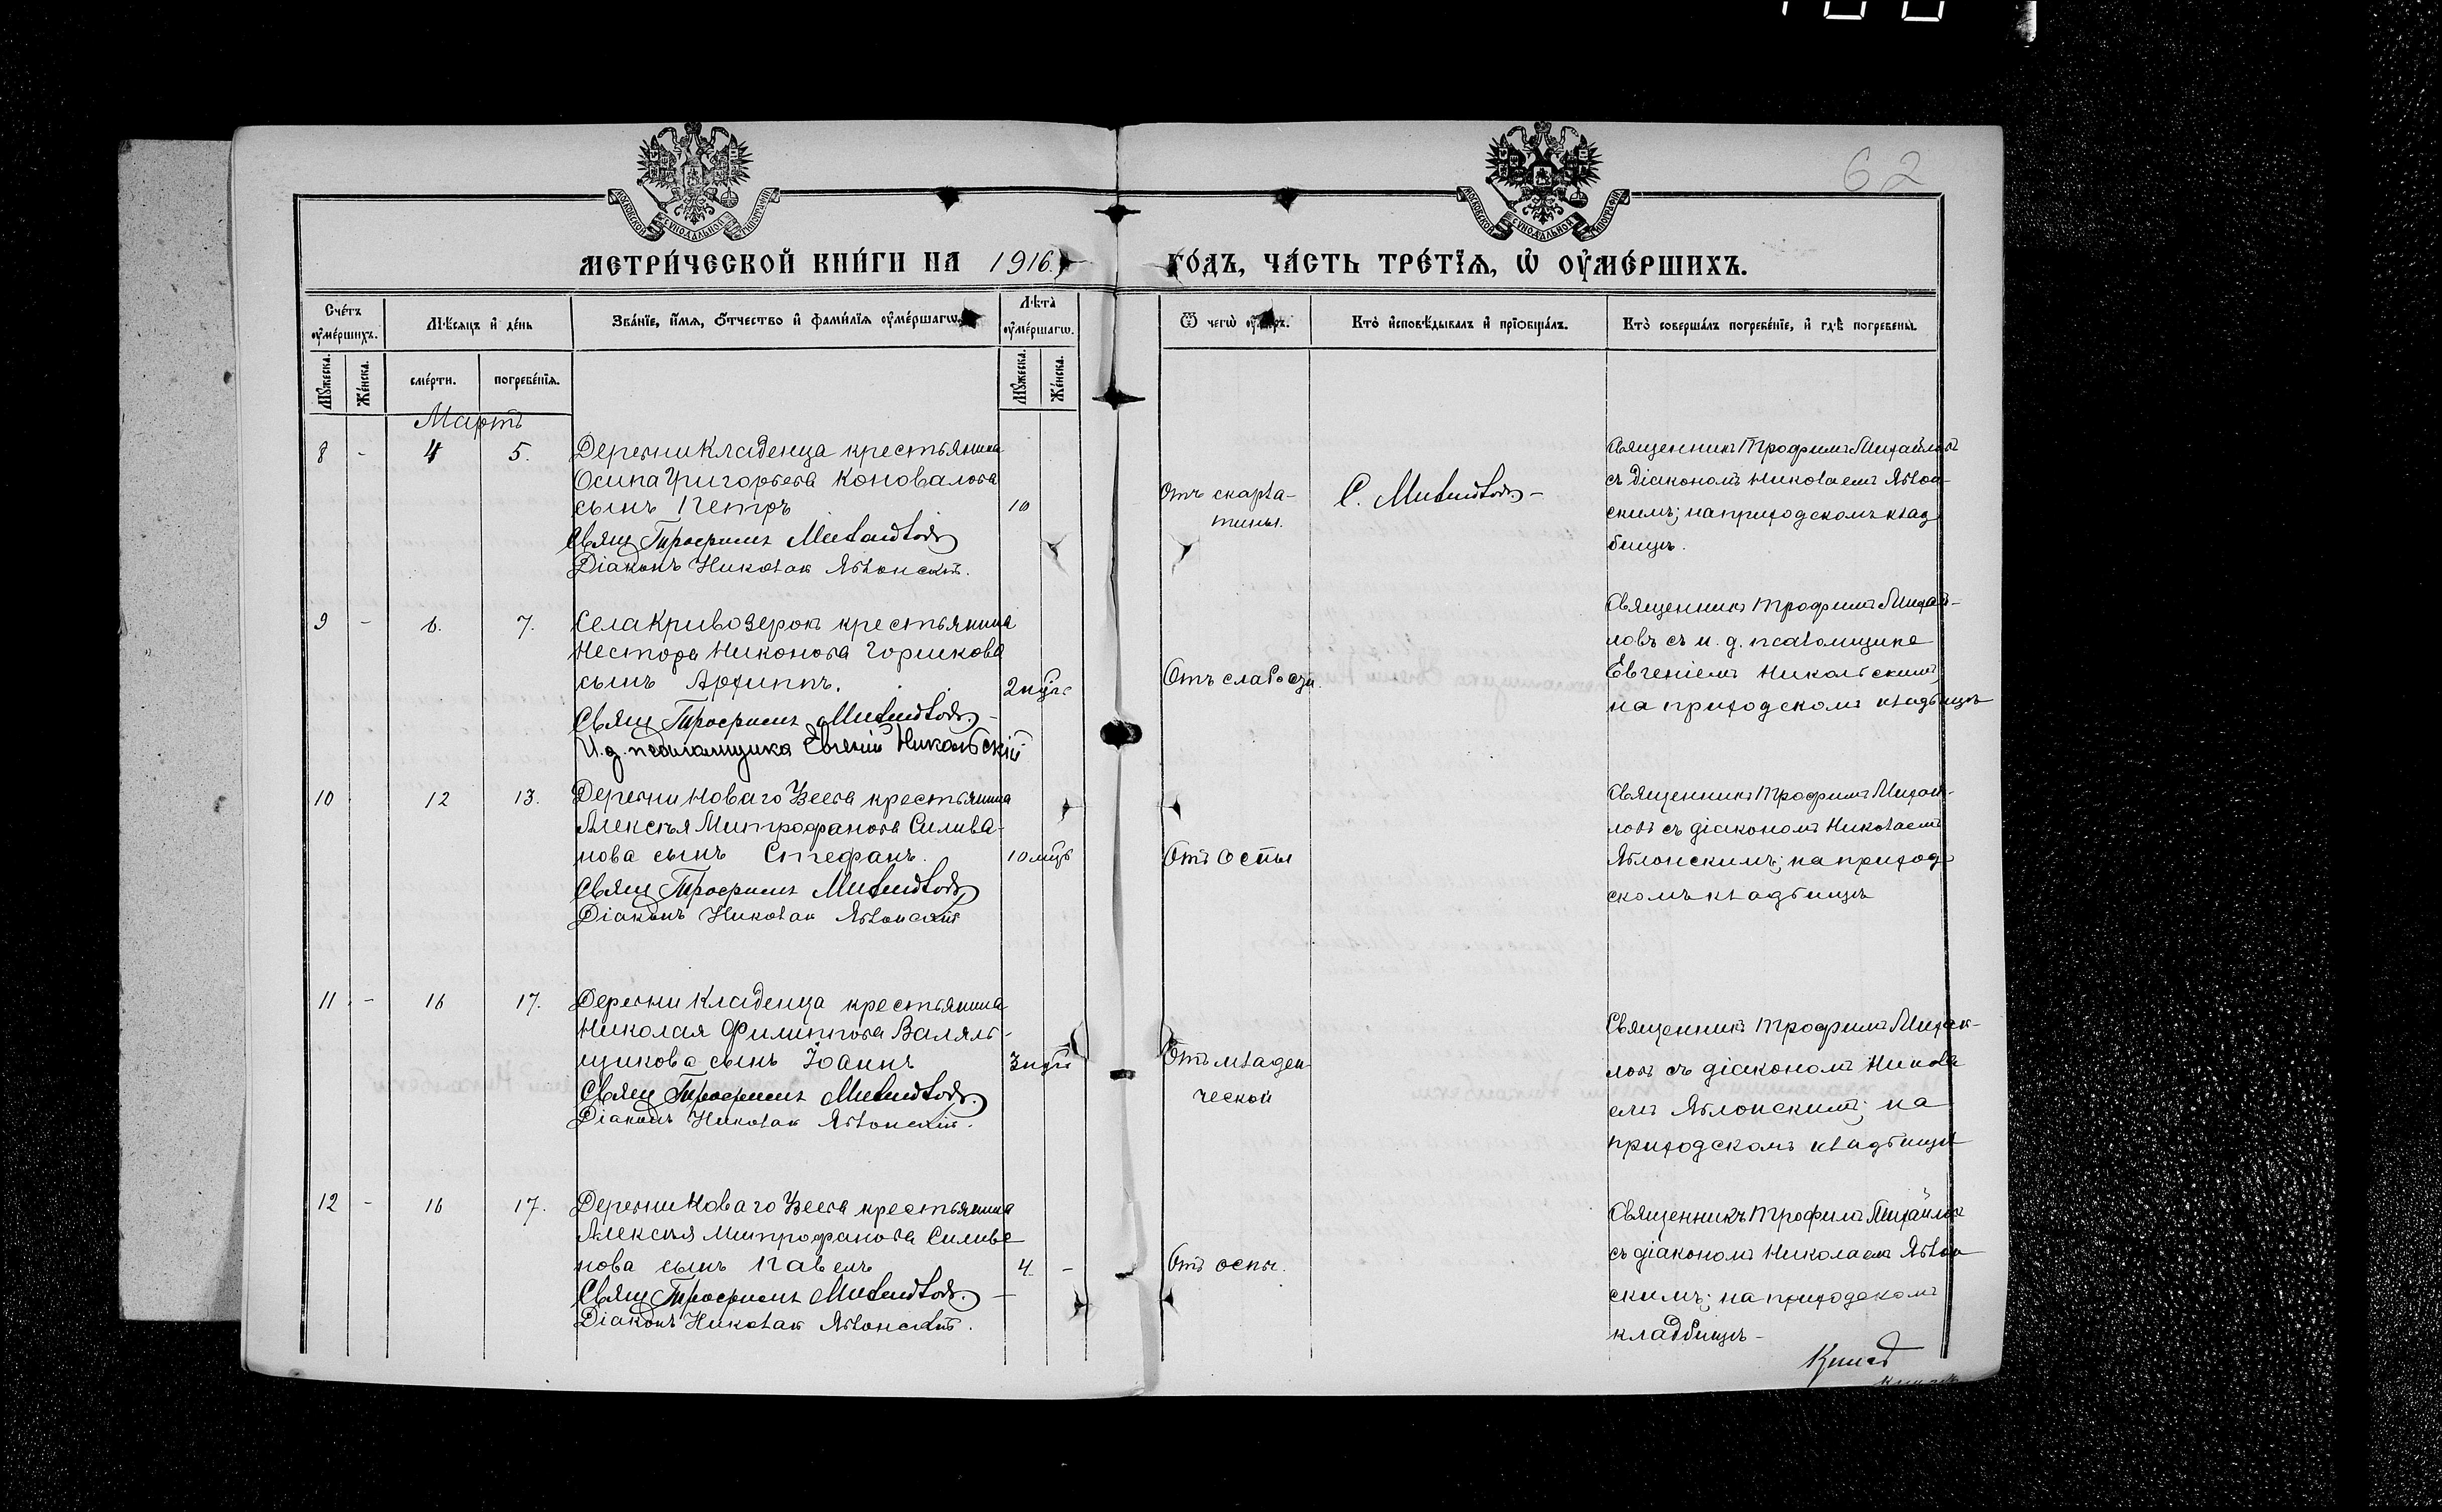 62
МЕТРИ́ЧЕСКОЙ КНИ́ГИ НА 1916 ГО́ДЪ, ЧА́СТЬ ТРЕ́ТІѦ, Ѡ҆ ОУ҆МЕ́РШИХЪ.
Сче́тъ оу҆ме́ршихъ.
Мѣ́сяцъ и҆ де́нь
Зва́нїе, и҆́мѧ, ѻ҆́тчество и҆ фами́лїѧ оу҆ме́ршагѡ.
Лѣ́та оу҆ме́ршагѡ.
Ѿ чегѡ̀ оу҆́меръ.
Кто̀ и҆сповѣ́дывалъ и҆ прїѡбща́лъ.
Кто̀ соверша́лъ погребе́нїе, и҆ гдѣ̀ погребены̀.
Мꙋ́жеска.
Же́нска.
сме́рти.
погребе́нїѧ.
Мꙋ́жеска.
Же́нска.
Мартъ
8 - 4 5. Деревни Кладенца крестьянина
Осипа Григорьева Коновалова
сынъ Петръ 10
Свящ Трофимъ Михайловъ
Діаконъ Николай Яблонскій.
Отъ скарла-
тины.
С. Михайловъ -
Священникъ Трофимъ Михайловъ
съ діакономъ Николаемъ Яблон-
скимъ; на приходскомъ клад
бищѣ.
9 - 6. 7. Села Кривозерокъ крестьянина
Нестора Никонова Горшкова
сынъ Архиппъ. 2 нѣд
Свящ Трофимъ Михайловъ -
И. д. псаломщика Евгеній Никольскій
Отъ слабости.
Священникъ Трофимъ Михай-
ловъ съ и. д. псаломщика
Евгеніемъ Никольскимъ,
на приходскомъ кладбищѣ
10 12 13. Деревни Новаго Узеева крестьянина
Алексѣя Митрофанова Силива-
нова сынъ Стефанъ. 10 мѣс
Свящ Трофимъ Михайловъ
Діаконъ Николай Яблонскій
Отъ оспы
Священникъ Трофимъ Михай-
ловъ съ діакономъ Николаемъ
Яблонскимъ; на приход-
скомъ кладбищѣ
11 - 16 17. Деревни Кладенца крестьянина
Николая Филиппова Валяль-
щикова сынъ Іоаннъ 3 нѣд
Свящ Трофимъ Михайловъ.
Діаконъ Николай Яблонскій.
Отъ младен
ческой
Священникъ Трофимъ Михай-
ловъ съ діакономъ Никола
емъ Яблонскимъ; на
приходскомъ кладбищѣ
12 - 16 17. Деревни Новаго Узеева крестьянина
Алексѣя Митрофанова Силива
нова сынъ Павелъ 4. -
Свящ Трофимъ Михайловъ. -
Діаконъ Николай Яблонскій.
Отъ оспы.
Священникъ Трофимъ Михайловъ
съ діакономъ Николаемъ Яблон
скимъ; на приходскомъ
кладбищѣ -